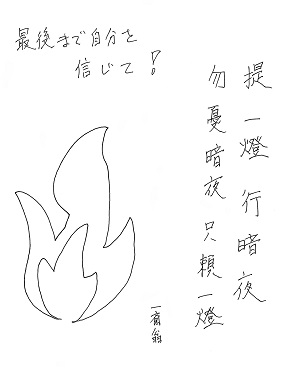 最後まで自分を
信じて!
提一燈 行暗夜
勿憂暗夜 只頼一燈
一斎翁